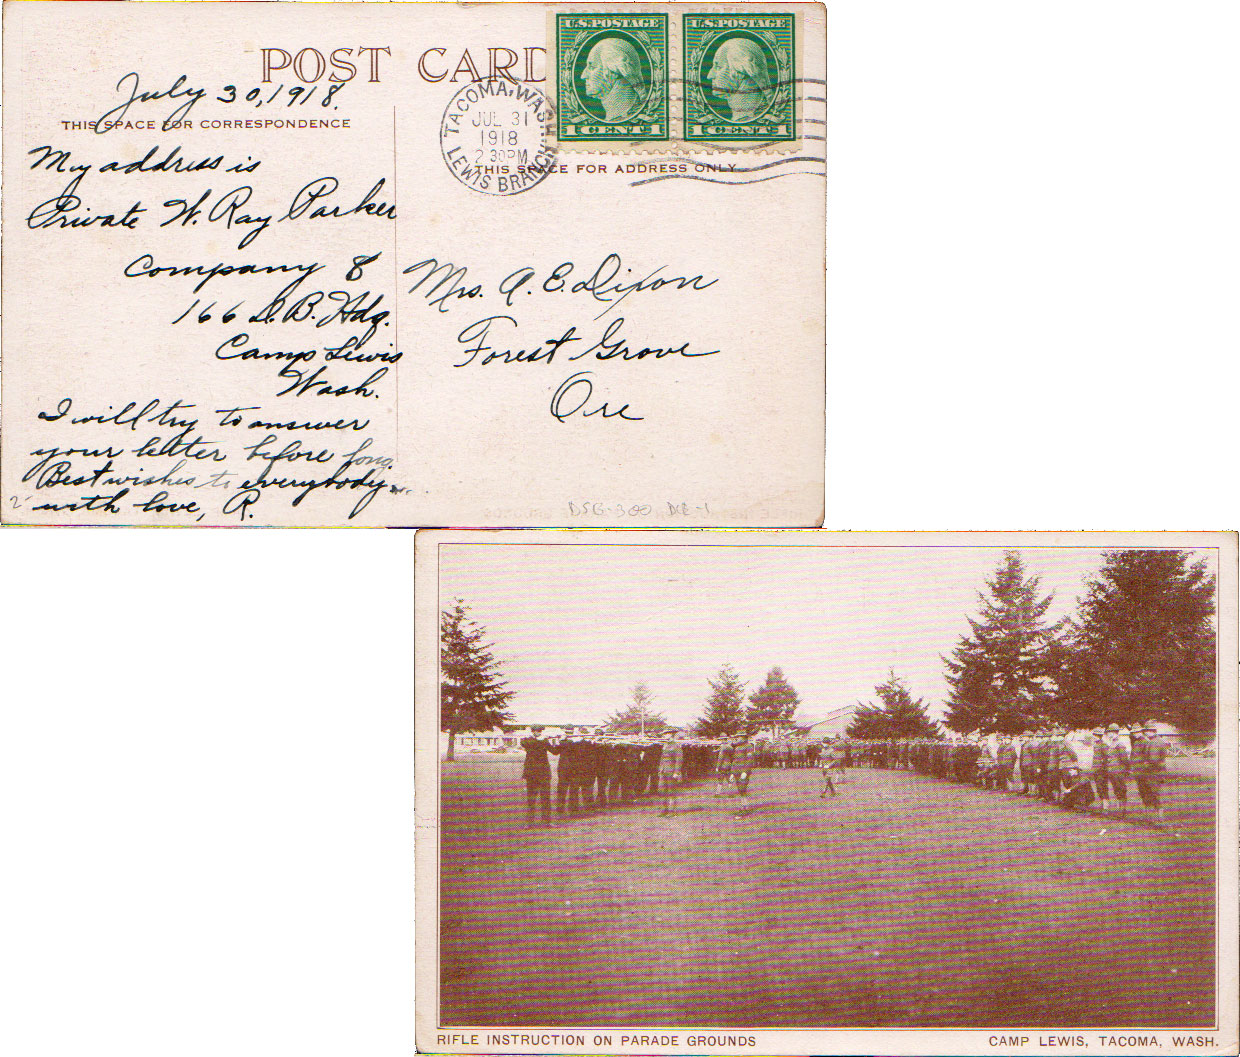 POST CARD
July 30, 1918.
THIS SPACE FOR CORRESPONDENCE
My address is
Private W. Ray Parker
Company 8
166 D.B. Hdq.
Camp Lewis
Wash.
I will try to answer
your letter before long.
Best wishes to everybody
with love, R.
U.S. POSTAGE
1 CENT 1
U.S. POSTAGE
1 CENT 1
TACOMA, WASH.
JUL 31
1918
2 30PM
LEWIS BRANCH
THIS SPACE FOR ADDRESS ONLY
Mrs. A. E. Dixon
Forest Grove
Ore
RIFLE INSTRUCTION ON PARADE GROUNDS
CAMP LEWIS, TACOMA, WASH.